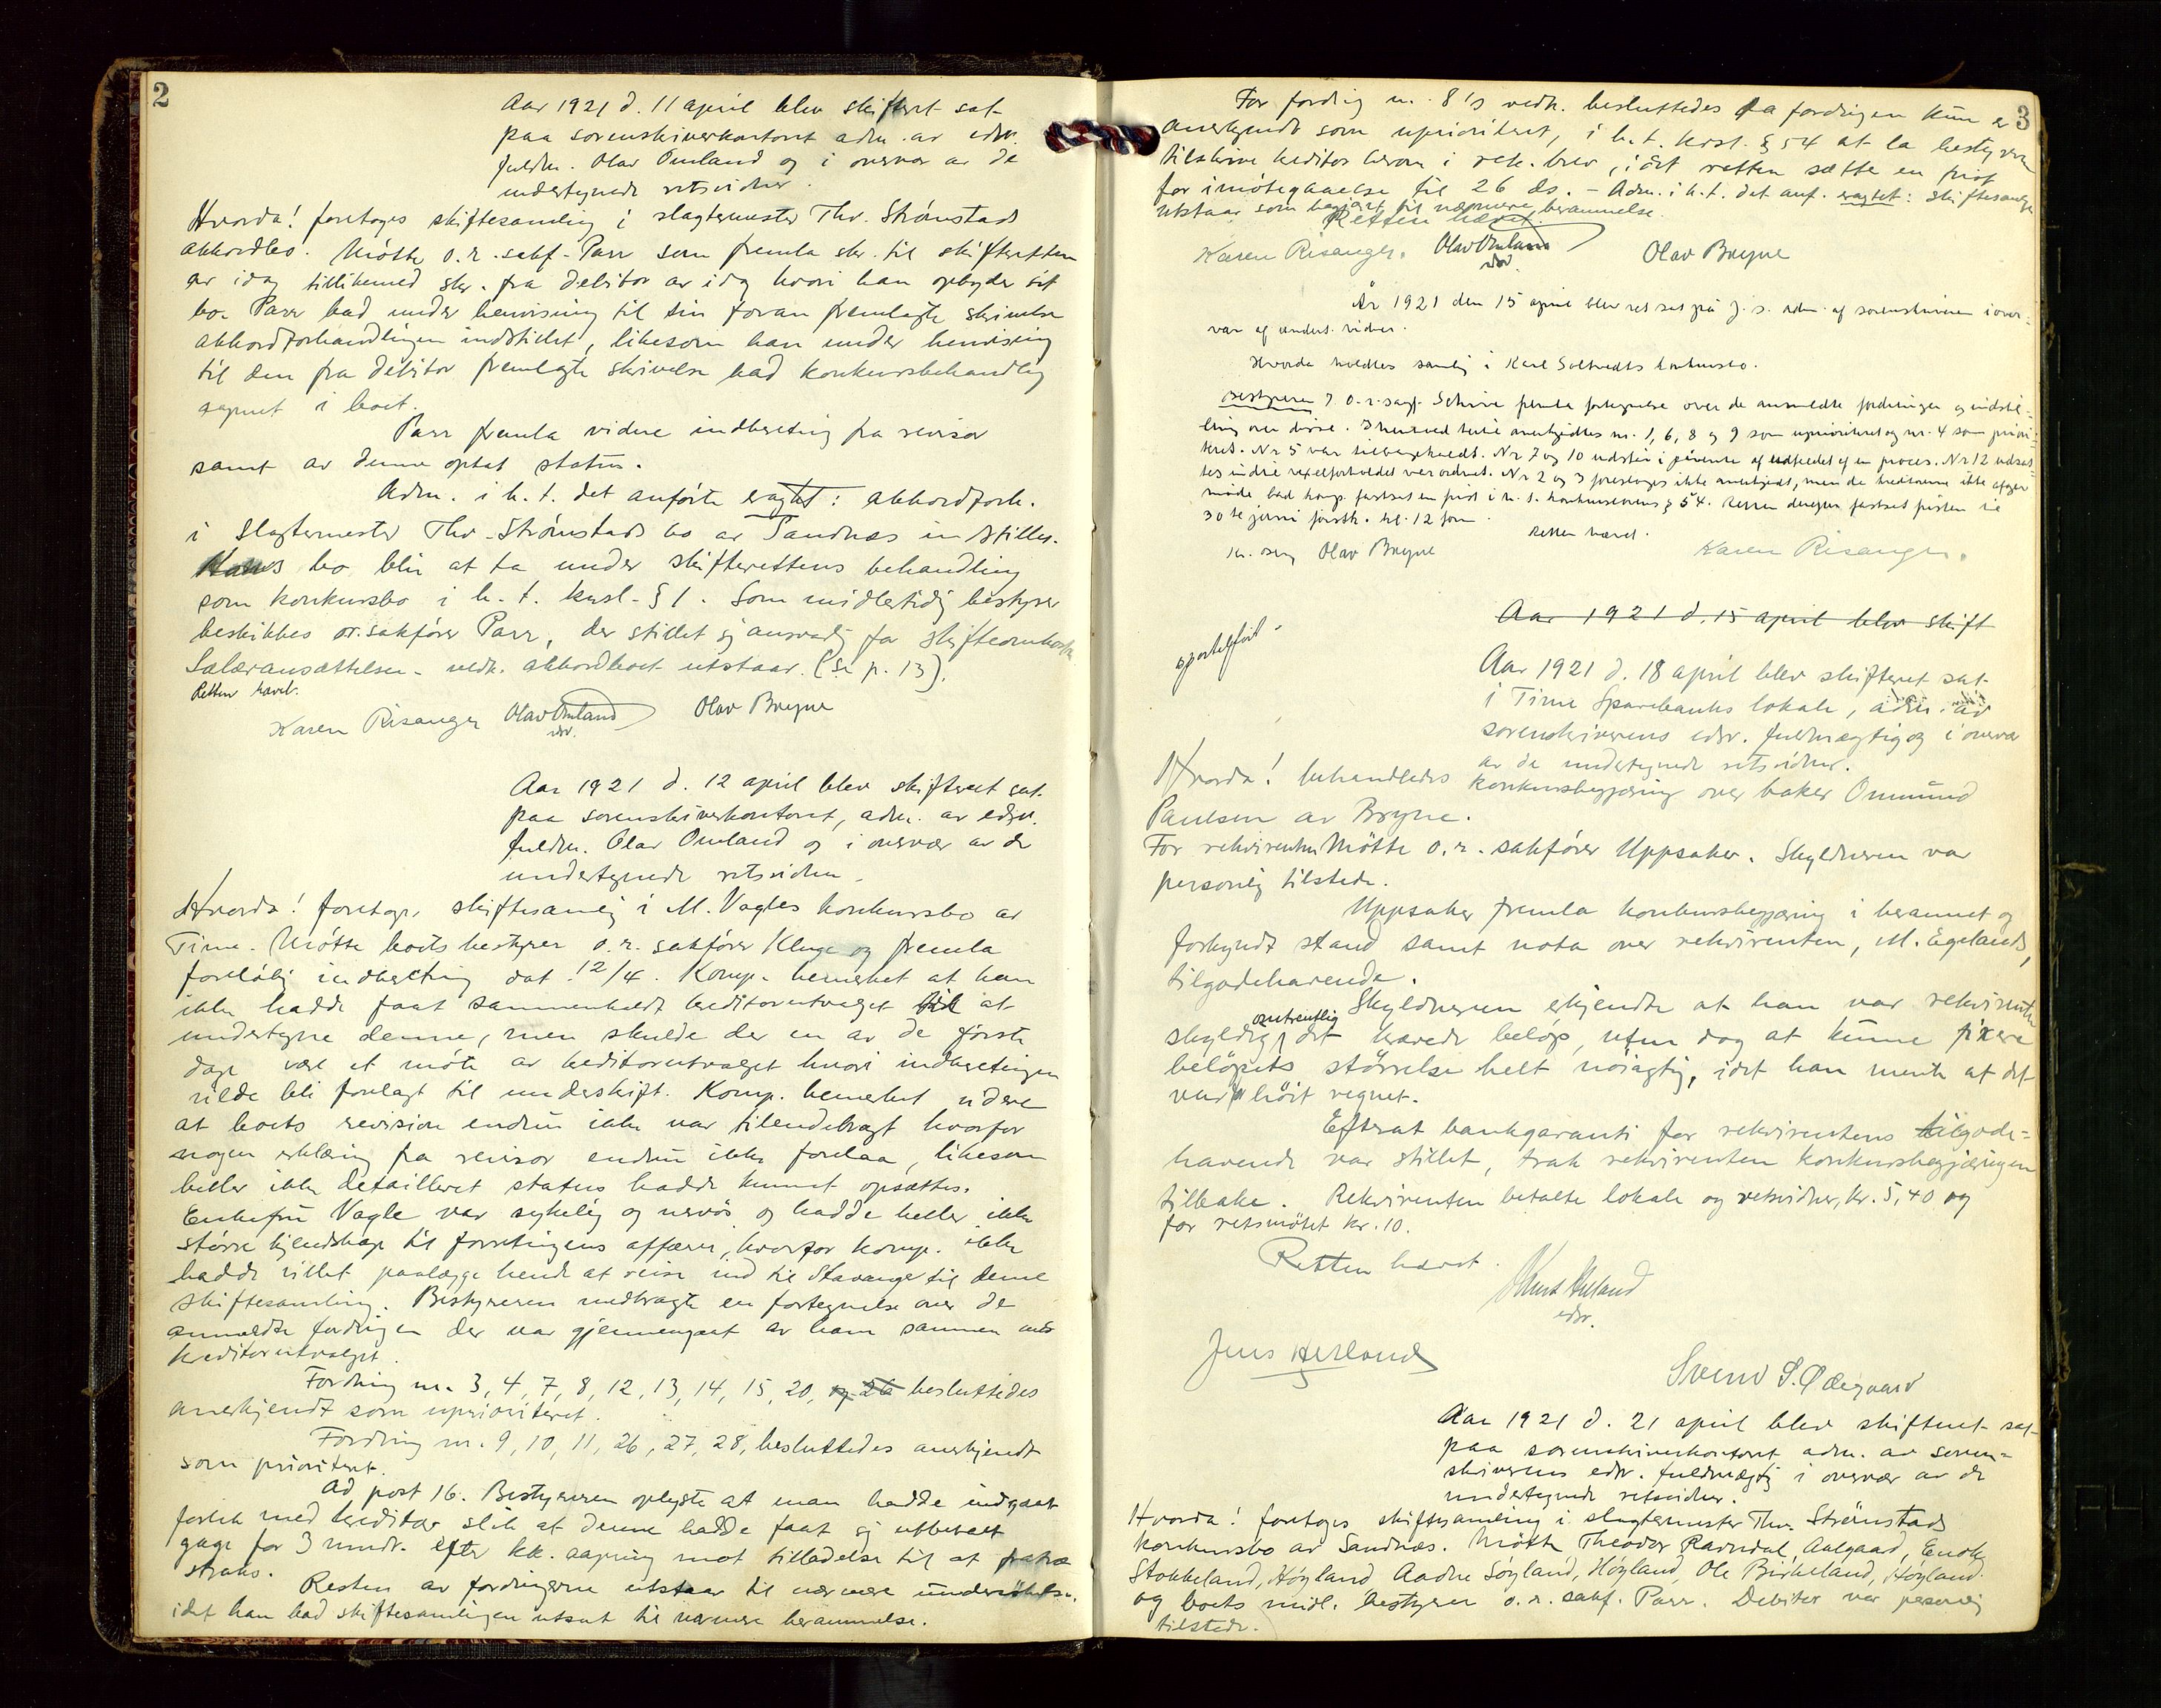 2
Aar 1921 d. 11 april blev skifteret sat
paa sorenskriverkontoret adm. av edsv.
fuldm. Olav Omland og i overvær av de
undertegnede retsvidner.
Hvorda! foretoges skiftesamling i slagtermester Thv. Strømstads
akkordbo. Møtte o.r.sakf. Parr som fremla skr. til skifteretten
av idag tillikemed skr. fra debitor av idag hvori han opbyder sit
bo. Parr bad under henvisning til sin foran fremlagte skrivelse
akkordforhandlingen indstillet, likesom han under henvisning
til den fra debitor fremlagte skrivelse bad konkursbehandling
aapnet i boet.
Parr fremla videre indberetning fra revisor
samt av denne optat status.
Adm. i h. t. det anførte eragtet: akkordforh.
i slagtermester Thv. Strømstads bo av Sandnes indstilles.
Hans bo blir at ta under skifterettens behandling
som konkursbo i h. t. kursl. § 1. Som midlertidig bestyrer
beskikkes or.sakfører Parr, der stillet sig ansvarlig for skifteomkostn.
Salæransættelsen vedk. akkordboet utstaar. (Se p. 13).
Retten hævet.
Karen Risanger Olav Omland Olav Bryne
edsv.
Aar 1921 d. 12 april blev skifteret sat
paa sorenskriverkontoret, adm. av edsv.
fuldm. Olav Omland og i overvær av de
undertegnede retsvidner.
Hvorda! foretoges skiftesamling i M. Vagles konkursbo av
Time. Møtte boets bestyrer o.r. sakfører Kluge og fremla
foreløbig indberetning dat. 12/4. Komp. bemerket at han
ikke hadde faat sammenkaldt kreditorutvalget til at
undertegne denne, men skulde der en av de første
dage være et møte av kreditorutvalget hvori indberetningen
vilde bli forelagt til underskrift. Komp. bemerket videre
at boets revision endnu ikke var tilendebragt hvorfor
nogen erklæring fra revisor endnu ikke forelaa, likesom
heller ikke detailleret status hadde kunnet opsættes.
Enkefru Vagle var sykelig og nervøs og hadde heller ikke
større kjendskap til forretningens affærer, hvorfor komp. ikke
hadde villet paalægge hende at reise ind til Stavanger til denne
skiftesamling. Bestyreren medbragte en fortegnelse over de
anmeldte fordringer der var gjennemgaat av ham sammen med
kreditorutvalget.
Fordring nr. 3, 4, 7, 8, 12, 13, 14, 15, 20, og 26 besluttedes
anerkjendt som uprioriteret.
Fordring nr. 9, 10, 11, 26, 27, 28, besluttedes anerkjendt
som prioriteret.
Ad post 16. Bestyreren oplyste at man hadde indgaat
forlik med kreditor slik at denne hadde faat sig utbetalt
gage for 3 mndr. efter kk. aapning mot tilladelse til at fratræ
straks.
Resten av fordringerne utstaar til nærmere undersøkelse.
idet han bad skiftesamlingen utsat til nærmere berammelse.
3
For fordring nr. 8's vedk. besluttedes fordringen kun
anerkjendt som uprioriteret, i h. t. kursl. § 54 at la bestyreren
tilskrive kreditor herom i rek. brev, idet retten sætte en frist
for imøtegaaelse til 26 ds. – Adm. i h. t. det anf. eragtet: Skiftesamlingen
utstaar som begjært til nærmere berammelse.
Retten hævet
Karen Risanger. Olav Omland Olav Bryne
edsv.
År 1921 den 15 april blev ret sat på s. s. adm. af sorenskriveren i over-
vær af undert. vidner.
Hvorda holdtes samling i Karl Soltvedts konkursbo.
Bestyreren O.r.sagf. Schive fremla fortegnelse over de anmeldte fordringer og indstil-
ling over disse. I henhold hertil anerkjedtes nr. 1, 6, 8 og 9 som uprioriteret og nr. 4 som priori-
teret. Nr 5 var tilbagekaldt. Nr 7 og 10 udstår i påvente af udfaldet af en proces. Nr 12 udsæt-
tes indtil vexelforholdet var ordnet. Nr 2 og 3 foresloges ikke anerkjedt, men da kreditorerne ikke
møde bad komp. fastsat en frist i h. t. konkurslovens § 54. Retten derefter fastsat fristen til
30te juni førstk. kl. 12 form.
Retten hævet.
Olav Bryne Karen Risanger.
Aar 1921 d. 15 april blev skift
sportelfrit
Aar 1921 d. 18 april blev skifteret sat
i Time Sparebanks lokale, adm. av
sorenskriverens edsv. fuldmægtig og i overvær
av de undertegnede retsvidner.
Hvorda! behandledes konkursbegjæring over baker Ommund
Paulsen av Bryne.
For rekvirenten møtte o.r. sakfører Uppsaker. Skyldneren var
personlig tilstede.
Uppsaker fremla konkursbegjæring i berammet og
forkyndt stand samt nota over rekvirenten, M. Egelands,
tilgodehavende.
Skyldneren erkjendte at han var rekvirenten
skyldig omtrentlig det krævede beløp, uten dog at kunne fixere
beløpets størrelse helt nøiagtig, idet han mente at det
var høit regnet.
Efterat bankgaranti for rekvirentens tilgode-
havende var stillet, trak rekvirenten konkursbegjæringen
tilbake. Rekvirenten betalte lokale og retsvidner, kr. 5,40 og
for retsmøtet kr. 10.
Retten hævet.
edsv.
Jens Herland
Svend S. Ødegaard
Aar 1921 d. 21 april blev skifteret sat
paa sorenskriverkontoret adm. av soren-
skriverens edsv. fuldmægtig i overvær av de
undertegnede retsvidner.
Hvorda! foretoges skiftesamling i slagtermester Thv. Strømstads
konkursbo av Sandnes. Møtte Theodor Ravndal, Aalgaard, Endre
Stokkeland, Høyland Aadne Søyland, Høyland, Ole Birkeland, Høyland
og boets midl. bestyrer o.r. sakf. Parr. Debitor var personlig
tilstede.